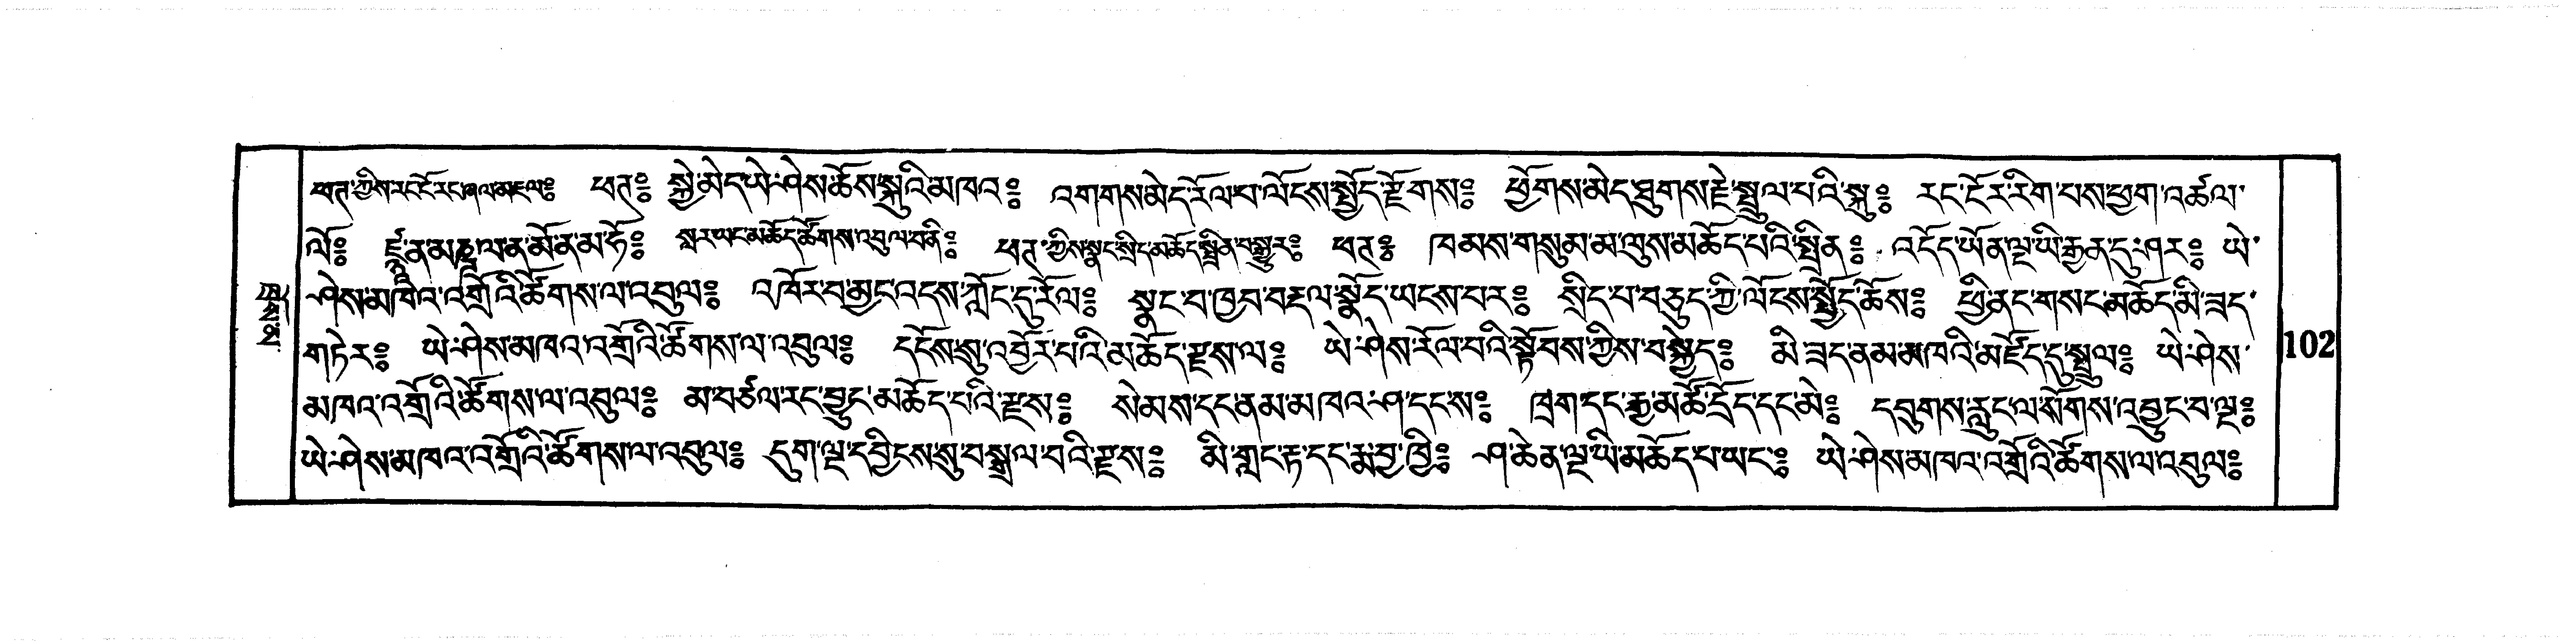 ཕཊ་ཀྱིས་རང་ངོ་རང་ཞལ་མཇལ༔ ཕཊ༔ སྐྱེ་མེད་ཡེ་ཤེས་ཆོས་སྐུའི་མཁའ༔ འགགས་མེད་རོལ་པ་ལོངས་སྤྱོད་རྫོགས༔ ཕྱོགས་མེད་ཐུགས་རྗེ་སྤྲུལ་པའི་སྐུ༔ རང་ངོར་རིག་པས་ཕྱག་འཚལ་
ལོ༔ ཨན་མཎྜལ་ན་མོ་ན་མ་ཧོ༔ སླར་ཡང་མཆོད་ཚོགས་འབུལ་བ་ནི༔ ཕཊ་ཀྱིས་སྣང་སྲིད་མཆོད་སྤྲིན་བསྒྱུར༔ ཕཊ༔ ཁམས་གསུམ་མ་ལུས་མཆོད་པའི་སྤྲིན༔ འདོད་ཡོན་ལྔ་ཡི་རྒྱན་དུ་ཤར༔ ཡེ་
ཤེས་མཁའ་འགྲོའི་ཚོགས་ལ་འབུལ༔ འཁོར་བ་མྱང་འདས་ཀློང་དུ་རོལ༔ སྣང་བ་ཁྱབ་བརྡལ་སྣོད་ཡངས་པར༔ སྲིད་པ་བཅུད་ཀྱི་ལོངས་སྤྱོད་ཆོས༔ ཕྱི་ནང་གསང་མཆོད་མི་ཟད་
གཏེར༔ ཡེ་ཤེས་མཁའ་འགྲོའི་ཚོགས་ལ་འབུལ༔ དངོས་སུ་འབྱོར་པའི་མཆོད་རྫས་ལ༔ ཡེ་ཤེས་རོལ་པའི་སྟོབས་ཀྱིས་བསྐྱེད༔ མི་ཟད་ནམ་མཁའི་མཛོད་དུ་སྤྲུལ༔ ཡེ་ཤེས་
མཁའ་འགྲོའི་ཚོགས་ལ་འབུལ༔ མ་བཙལ་རང་བྱུང་མཆོད་པའི་རྫས༔ སེམས་དང་ནམ་མཁའ་ཤ་དང་ས༔ ཁྲག་དང་རྒྱ་མཚོ་དྲོད་དང་མེ༔ དབུགས་རླུང་ལ་སོགས་འབྱུང་བ་ལྔ༔
ཡེ་ཤེས་མཁའ་འགྲོའི་ཚོགས་ལ་འབུལ༔ དུག་ལྔ་དབྱིངས་སུ་བསྒྲལ་བའི་རྫས༔ མི་གླང་རྟ་དང་རྨ་བྱ་ཁྱི༔ ཤ་ཆེན་ལྔ་ཡི་མཆོད་པ་ཡང༔ ཡེ་ཤེས་མཁའ་འགྲོའི་ཚོགས་ལ་འབུལ༔
102